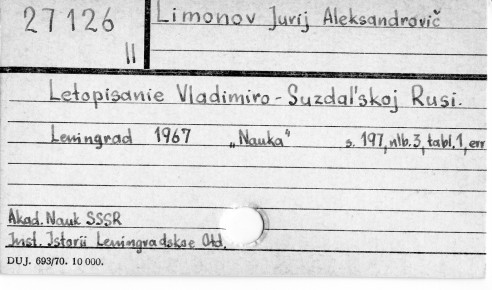 27126
II
Limonov Jurij Aleksandrovič
Letopisanie Vladimiro-Suzdal'skoj Rusi.
Leningrad 1967 „Nauka" s. 197, nlb. 3, tabl. 1, err
Akad. Nauk SSSR
Inst. Istorii Leningradskoe Otd.
DUJ. 693/70. 10 000.